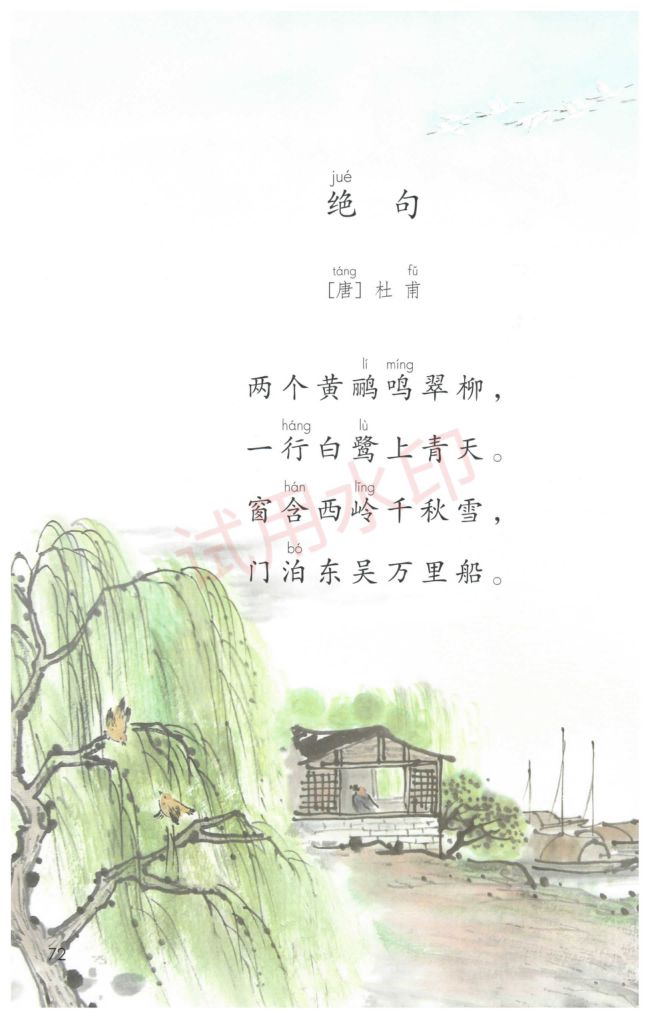 jué
绝 句
táng fǔ
[唐] 杜 甫
lí míng
两个黄鹂鸣翠柳，
háng lù
一行白鹭上青天。
hán lǐng
窗含西岭千秋雪，
bó
门泊东吴万里船。
试用水印
72